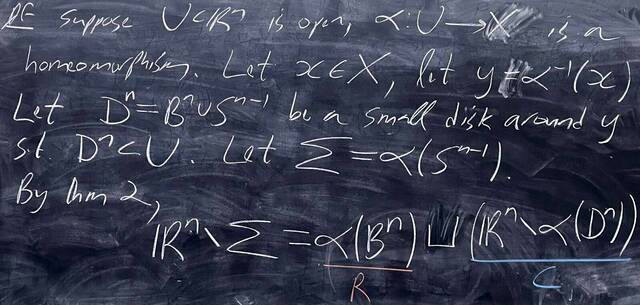 Pf Suppose U⊂ℝⁿ is open, α: U → X is a
homeomorphism. Let x∈X, let y = α⁻¹(x)
Let Dⁿ = Bⁿ ∪ Sⁿ⁻¹ be a small disk around y
s.t. Dⁿ ⊂ U. Let Σ = α(Sⁿ⁻¹).
By thm 2,
ℝⁿ \ Σ = α(Bⁿ) ⊔ (ℝⁿ \ α(Dⁿ))
R C